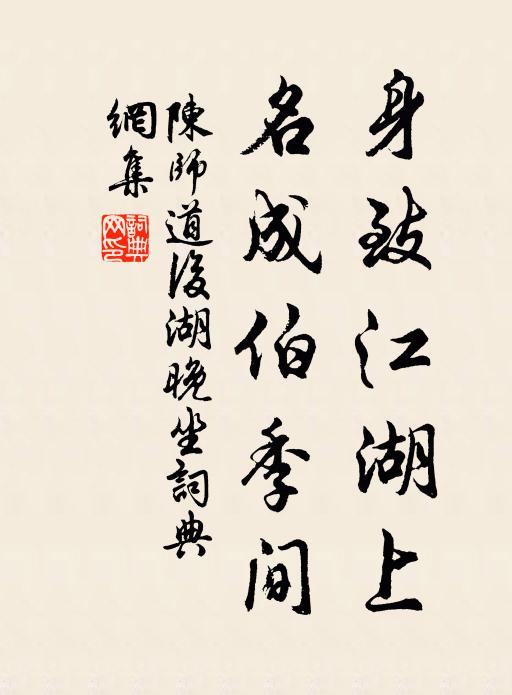 身致江湖上
名成伯季間
陳師道後湖晚坐詞典
網集
詞典
网印